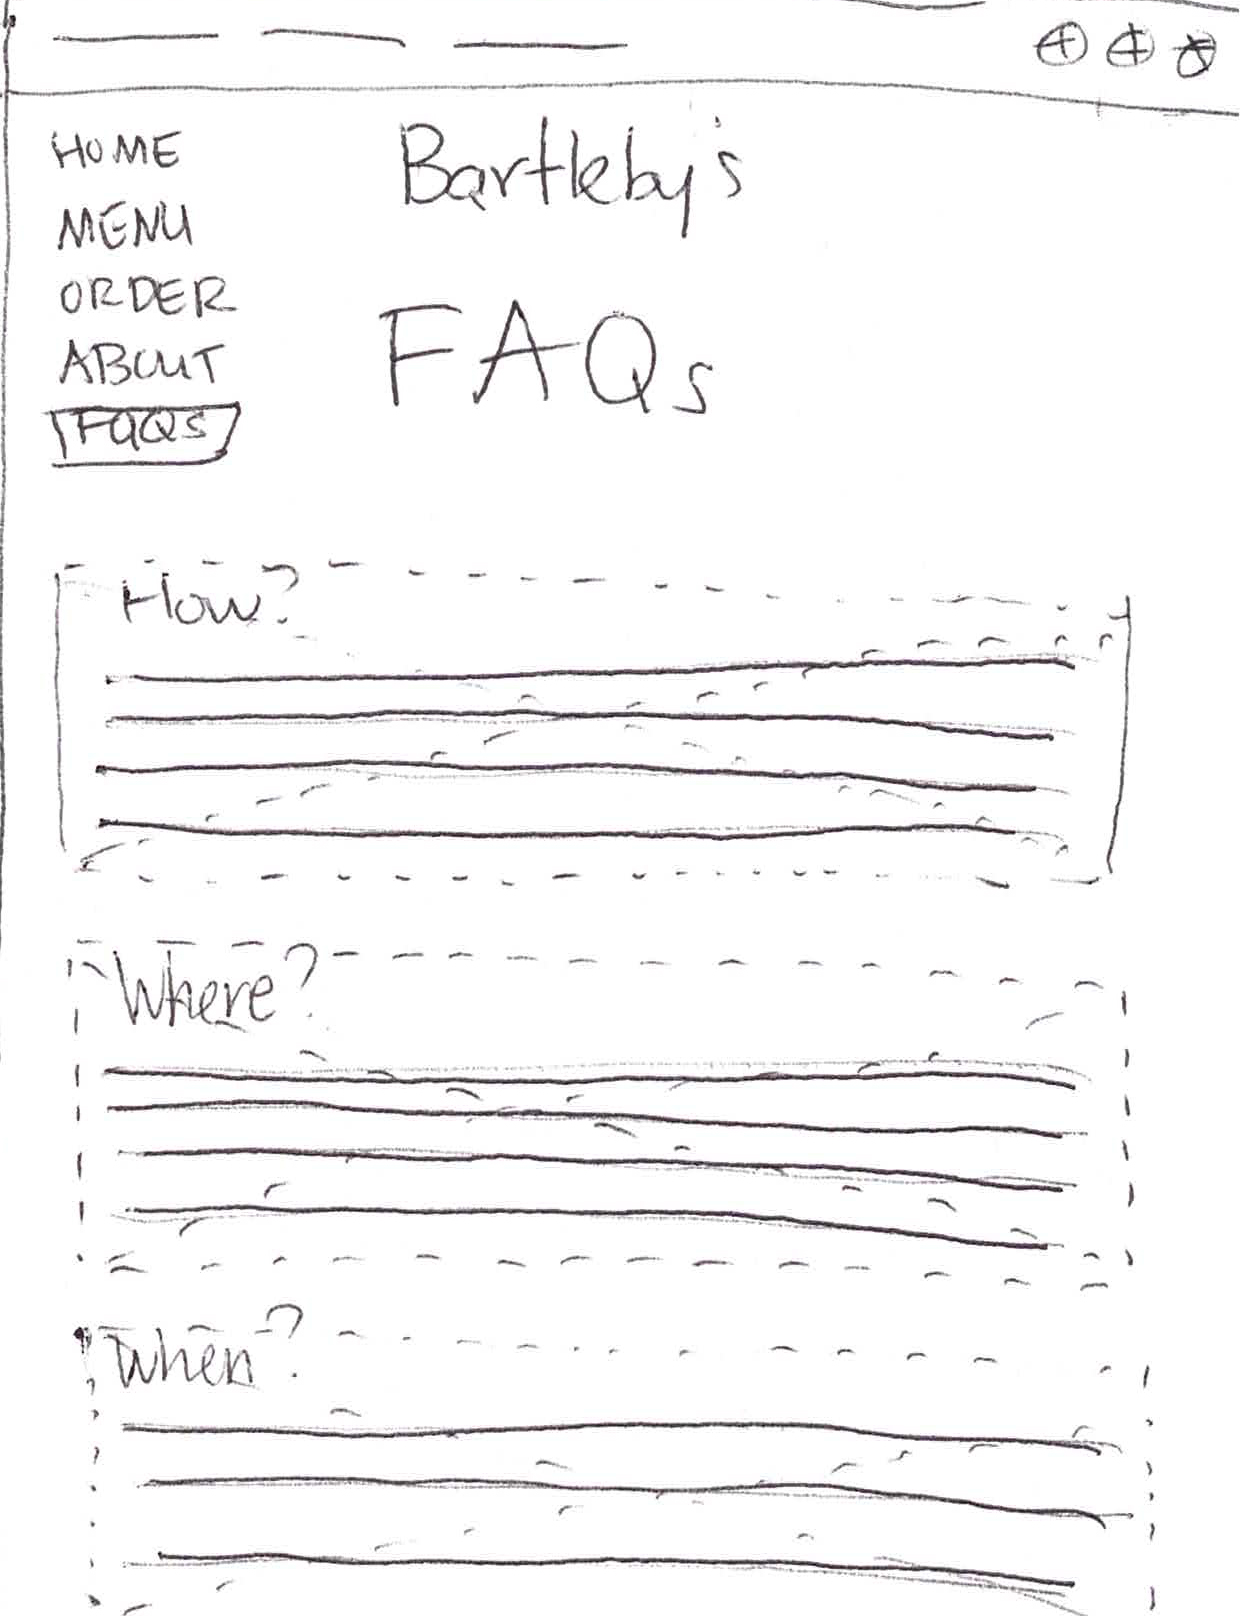 HOME
MENU
ORDER
ABOUT
FAQS
Bartleby's
FAQs
How?
Where?
When?